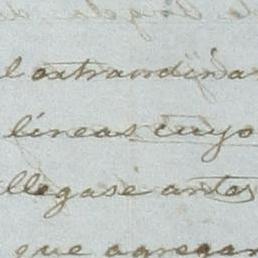 l extraordina
lineas cuyo
llegase antes
que agregar